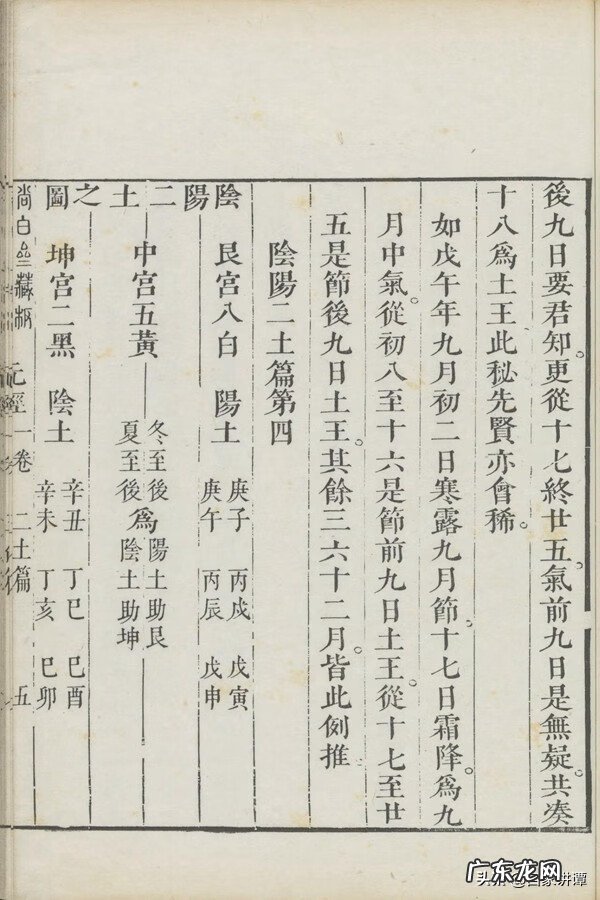 後九日要君知更從十七終廿五氣前九日是無疑共凑
十八爲土王此秘先賢亦會稀
如戊午年九月初二日寒露九月節十七日霜降爲九
月中氣從初八至十六是節前九日土王從十七至廿
五是節後九日土王其餘三六十二月皆此例推
陰陽二土篇第四
陰陽二土之圖
艮宫八白 陽土
庚子 丙戍 戊寅
庚午 丙辰 戊申
中宫五黃
冬至後爲陽土助艮
夏至後爲陰土助坤
坤宫二黑 陰土
辛丑 丁巳 巳酉
辛未 丁亥 巳卯
尚白齋藏板 元經一卷 二土篇 五
广东龙网